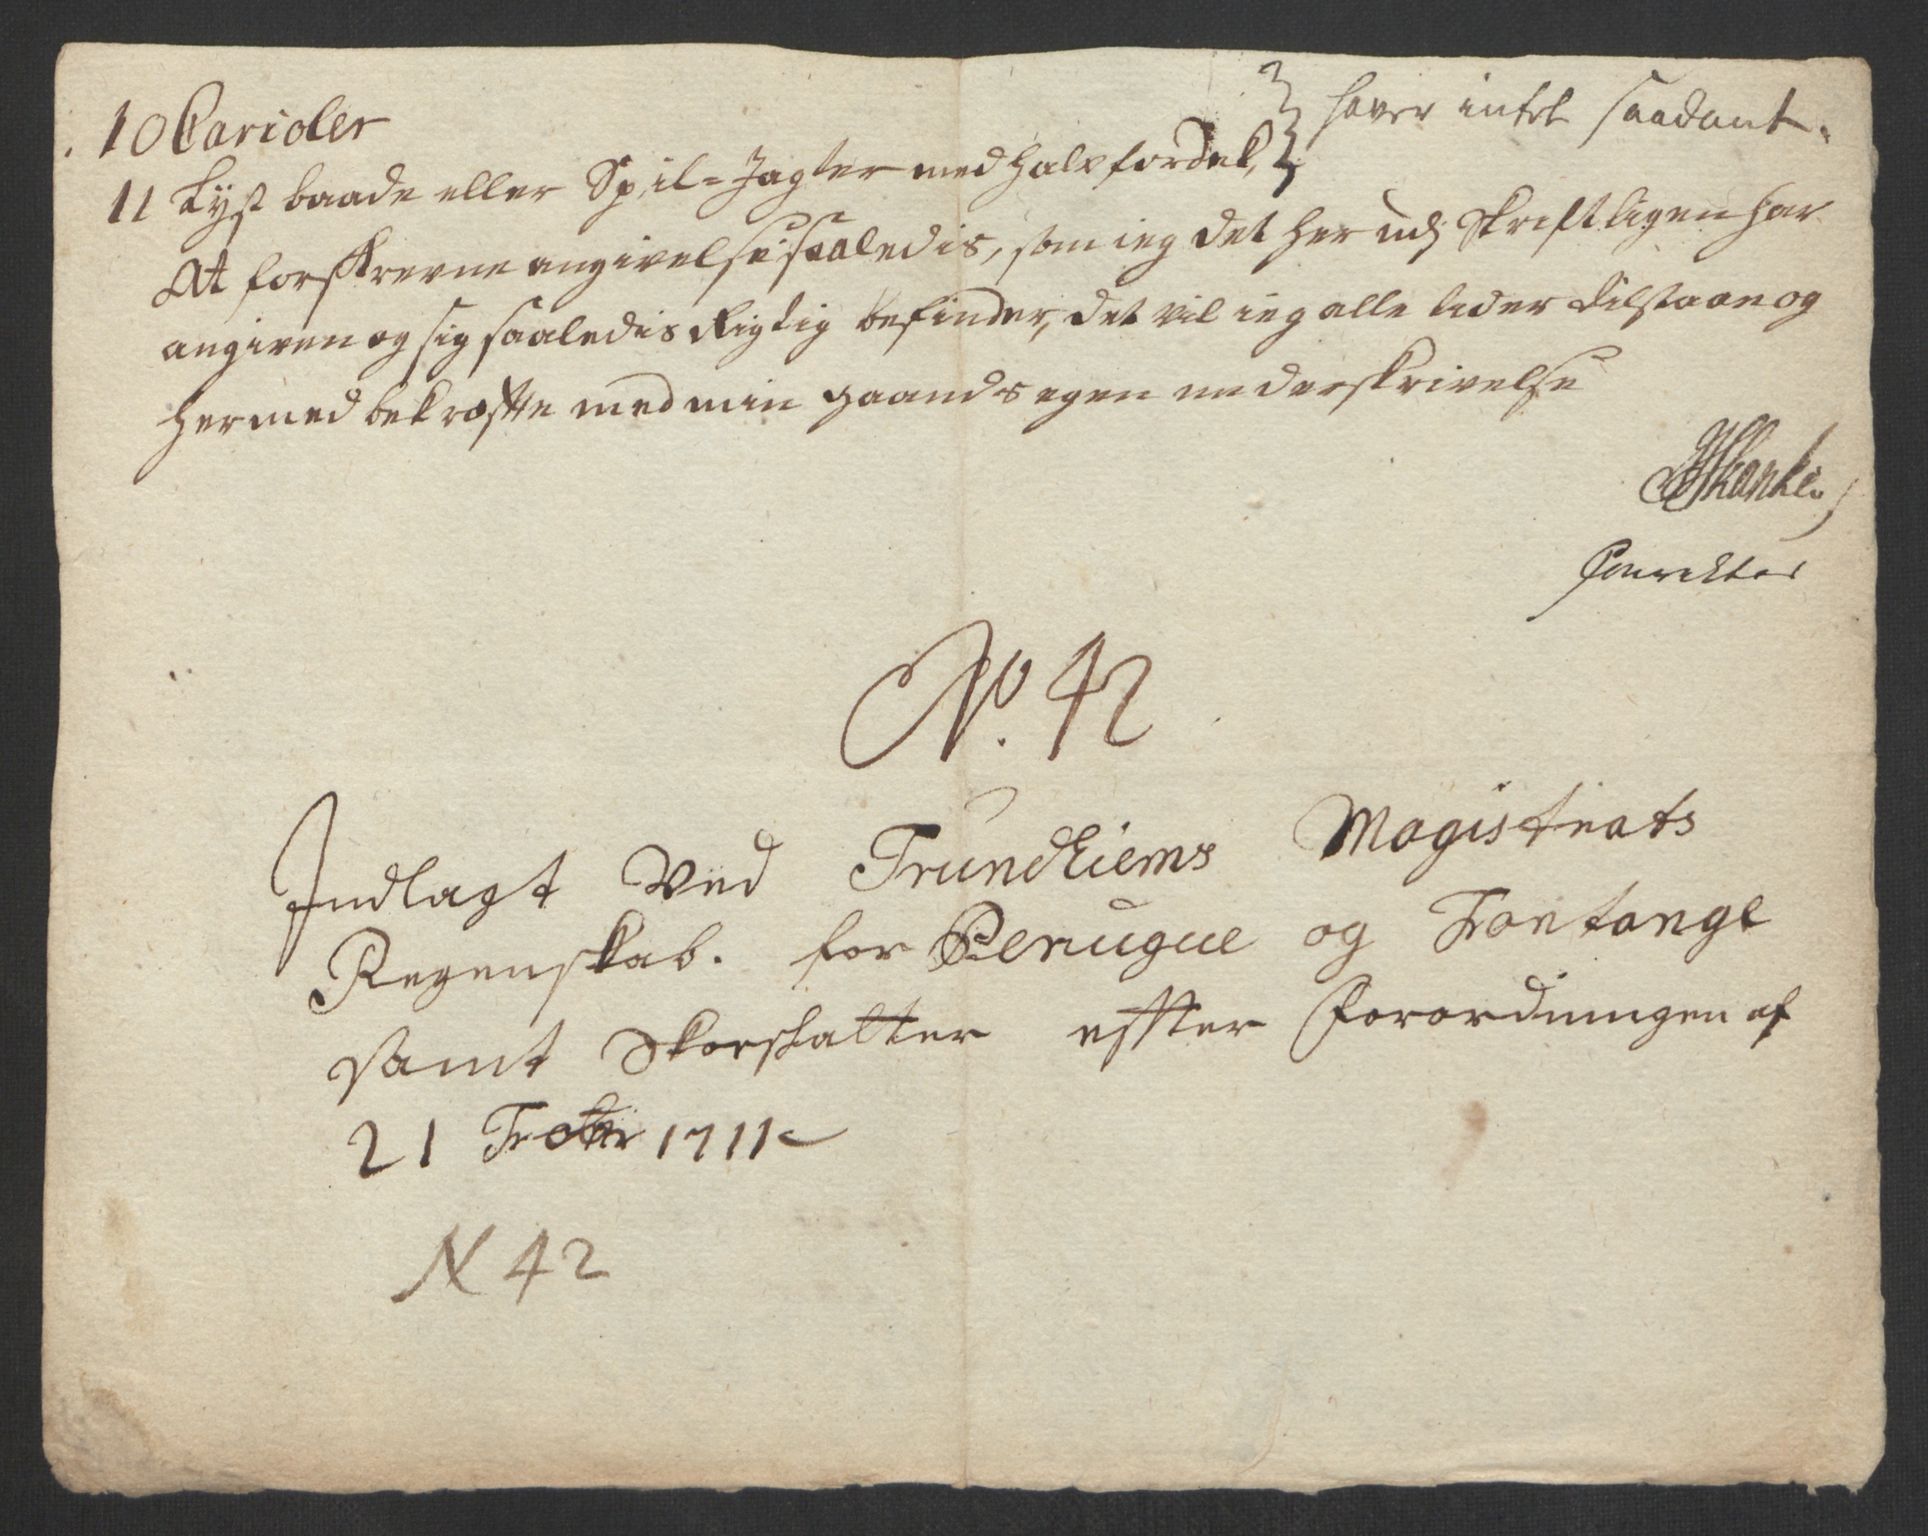 10 Carioler
11 Lyst baade eller Spil-Jagter med halv fordek, } haver intet saadant.
At forskrevne angivelse saaledis, som ieg det her udj Skriftligen har
angiven og sig saaledis Rigtig befinder, det vil ieg alle tider tilstaae og
hermed bekræffte med min haands egen underskrivelse
Skanke
Conrector
No. 42
Indlagt Ved Trundhiems Magistrats
Regenskab. for Peruque og Fontange
samt Skoeskatter effter Forordningen af
21 Octbr 1711
N 42